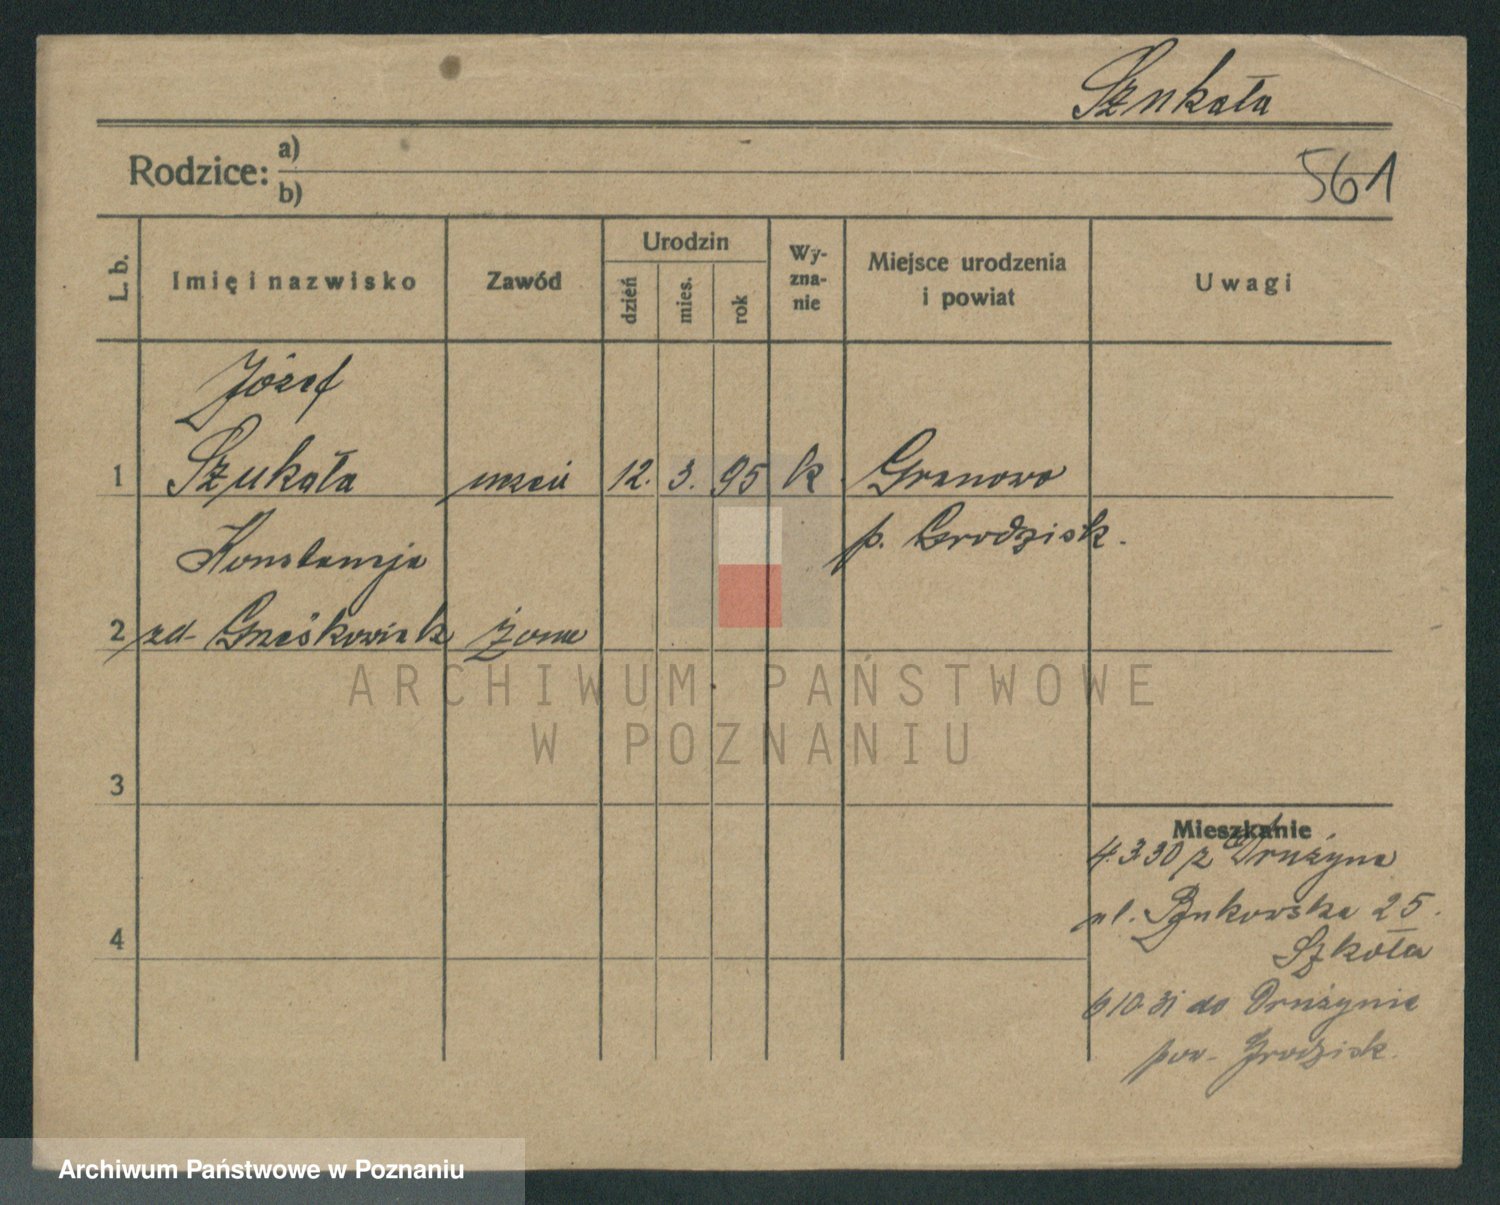 Szukała
Rodzice: a)
b)
561
L. b.
Imię i nazwisko
Zawód
Urodzin
dzień
mies.
rok
Wy-
zna-
nie
Miejsce urodzenia
i powiat
Uwagi
Józef
1 Szukała 12. 3. 95 k Granowo
p. Grodzisk.
Konstancja
2 zd- Grześkowiak żona
3
4
Mieszkanie
4.3.30 z Drużyna
ul. Bukowska 25.
Szkoła
6 10.31 do Drużynie
pow. Grodzisk.
ARCHIWUM PAŃSTWOWE
W POZNANIU
Archiwum Państwowe w Poznaniu